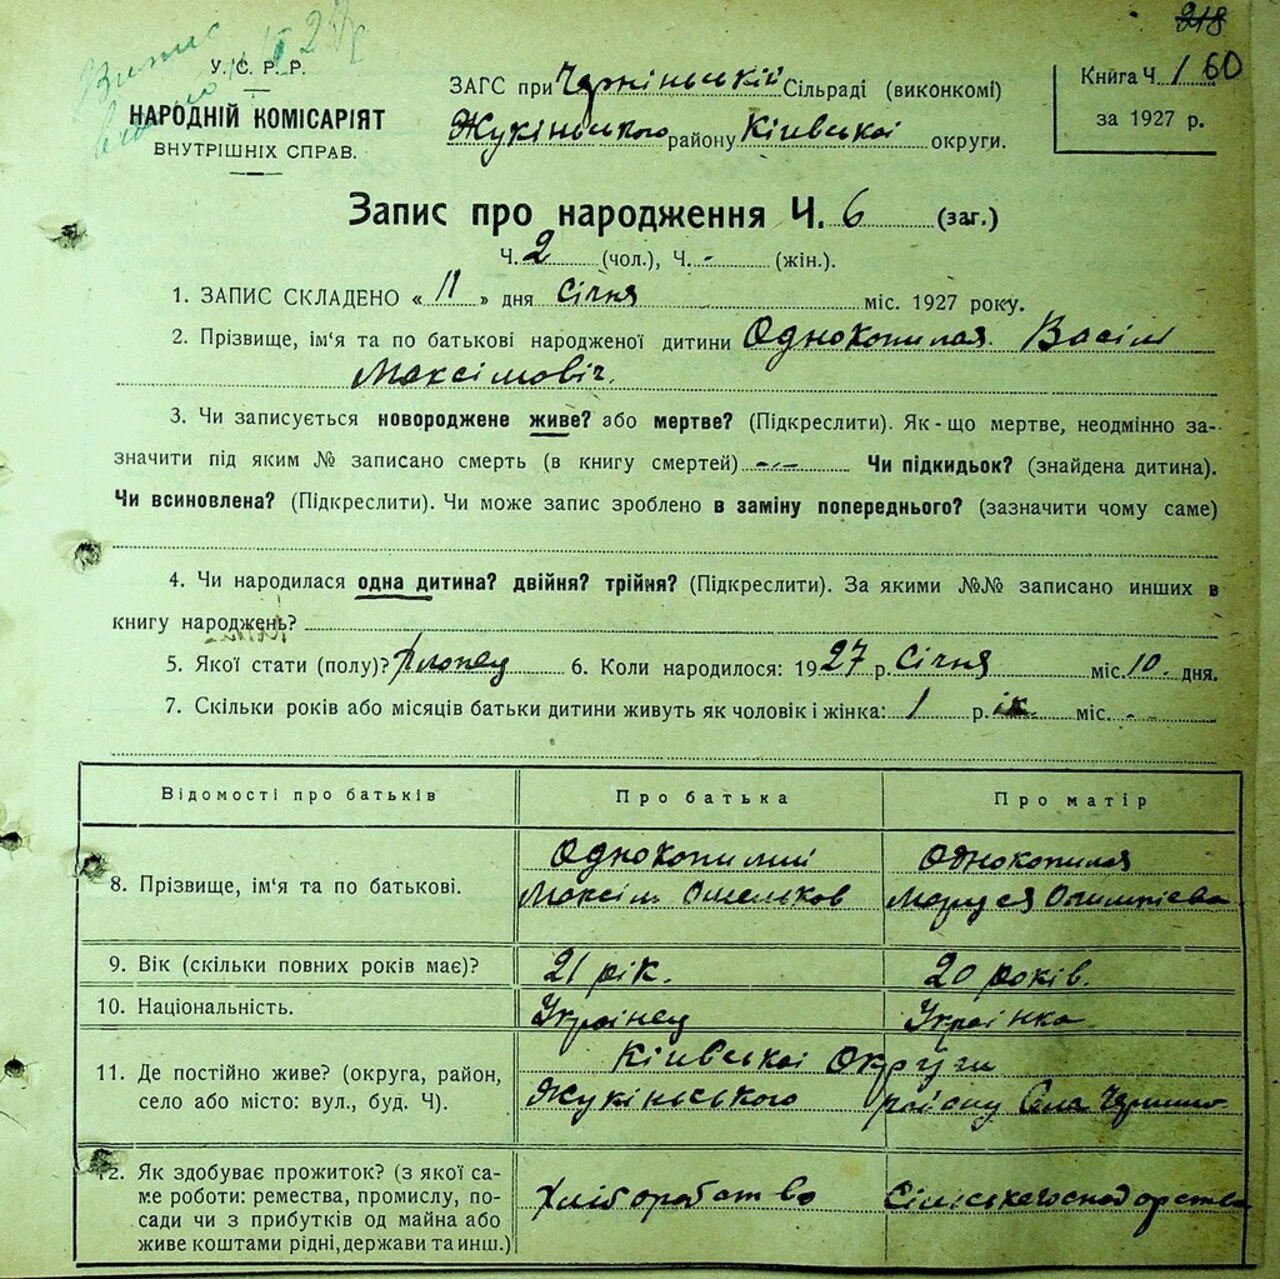 218
У. С. Р. Р.
НАРОДНІЙ КОМІСАРІЯТ
ВНУТРІШНІХ СПРАВ.
ЗАГС при Черніньській Сільраді (виконкомі)
Жукіньського району Кієвськоі округи.
Книга Ч. 1 60
за 1927 р.
Запис про народження Ч. 6 (заг.)
Ч. 2 (чол.), Ч. - (жін.).
1. ЗАПИС СКЛАДЕНО « 11 » дня Січня міс. 1927 року.
2. Прізвище, ім'я та по батькові народженої дитини Однокопилая Васіл
Максімовіч.
3. Чи записується новороджене живе? або мертве? (Підкреслити). Як-що мертве, неодмінно за-
значити під яким № записано смерть (в книгу смертей) Чи підкидьок? (знайдена дитина).
Чи всиновлена? (Підкреслити). Чи може запис зроблено в заміну попереднього? (зазначити чому саме)
4. Чи народилася одна дитина? двійня? трійня? (Підкреслити). За якими №№ записано инших в
книгу народжень?
5. Якої стати (полу)? хлопец 6. Коли народилося: 1927 р. Січня міс. 10 дня.
7. Скільки років або місяців батьки дитини живуть як чоловік і жінка: 1 р. ік міс. - -
Відомості про батьків Про батька Про матір
8. Прізвище, ім'я та по батькові.
Однокопилий
Максім Омельков
Однокопилая
Маруся
9. Вік (скільки повних років має)? 21 рік. 20 років.
10. Національність. Украінец Украінка
11. Де постійно живе? (округа, район,
село або місто: вул., буд. Ч).
Кіевськоі Округи
Жукіньського району Села
12. Як здобуває прожиток? (з якої са-
ме роботи: ремества, промислу, по-
сади чи з прибутків од майна або
живе коштами рідні, держави та инш.)
Хліборобство Сільськегосподорство